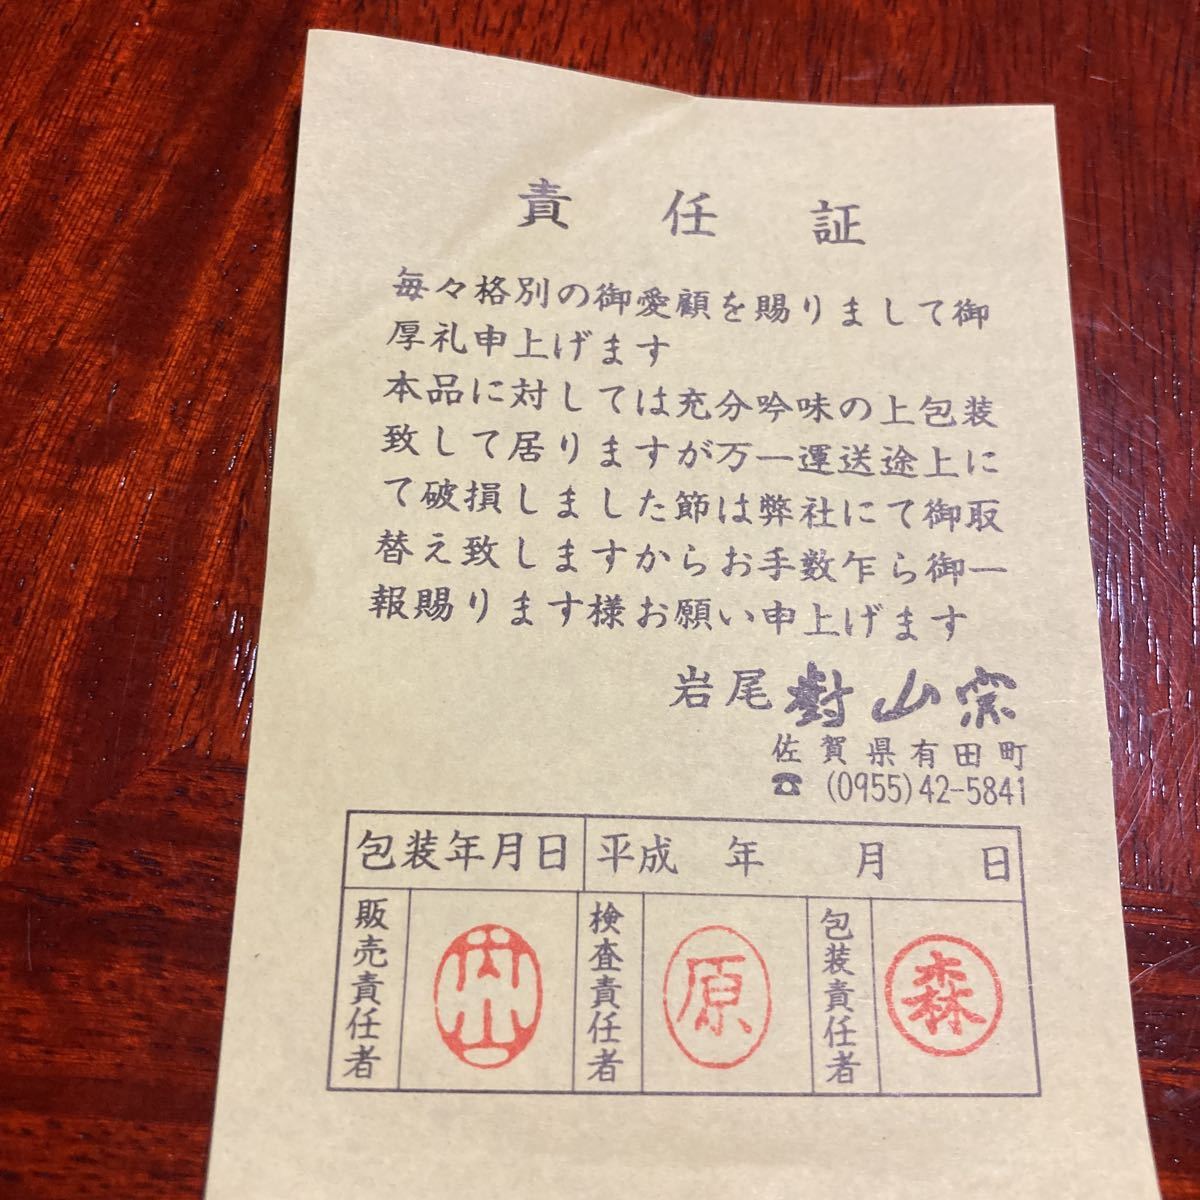 責任証
毎々格別の御愛顧を賜りまして御
厚礼申上げます
本品に対しては充分吟味の上包装
致して居りますが万一運送途上に
て破損しました節は弊社にて御取
替え致しますからお手数乍ら御一
報賜ります様お願い申上げます
岩尾對山窯
佐賀県有田町
☎(0955)42-5841
包装年月日 平成 年 月 日
販売責任者 内山 検査責任者 原 包装責任者 森